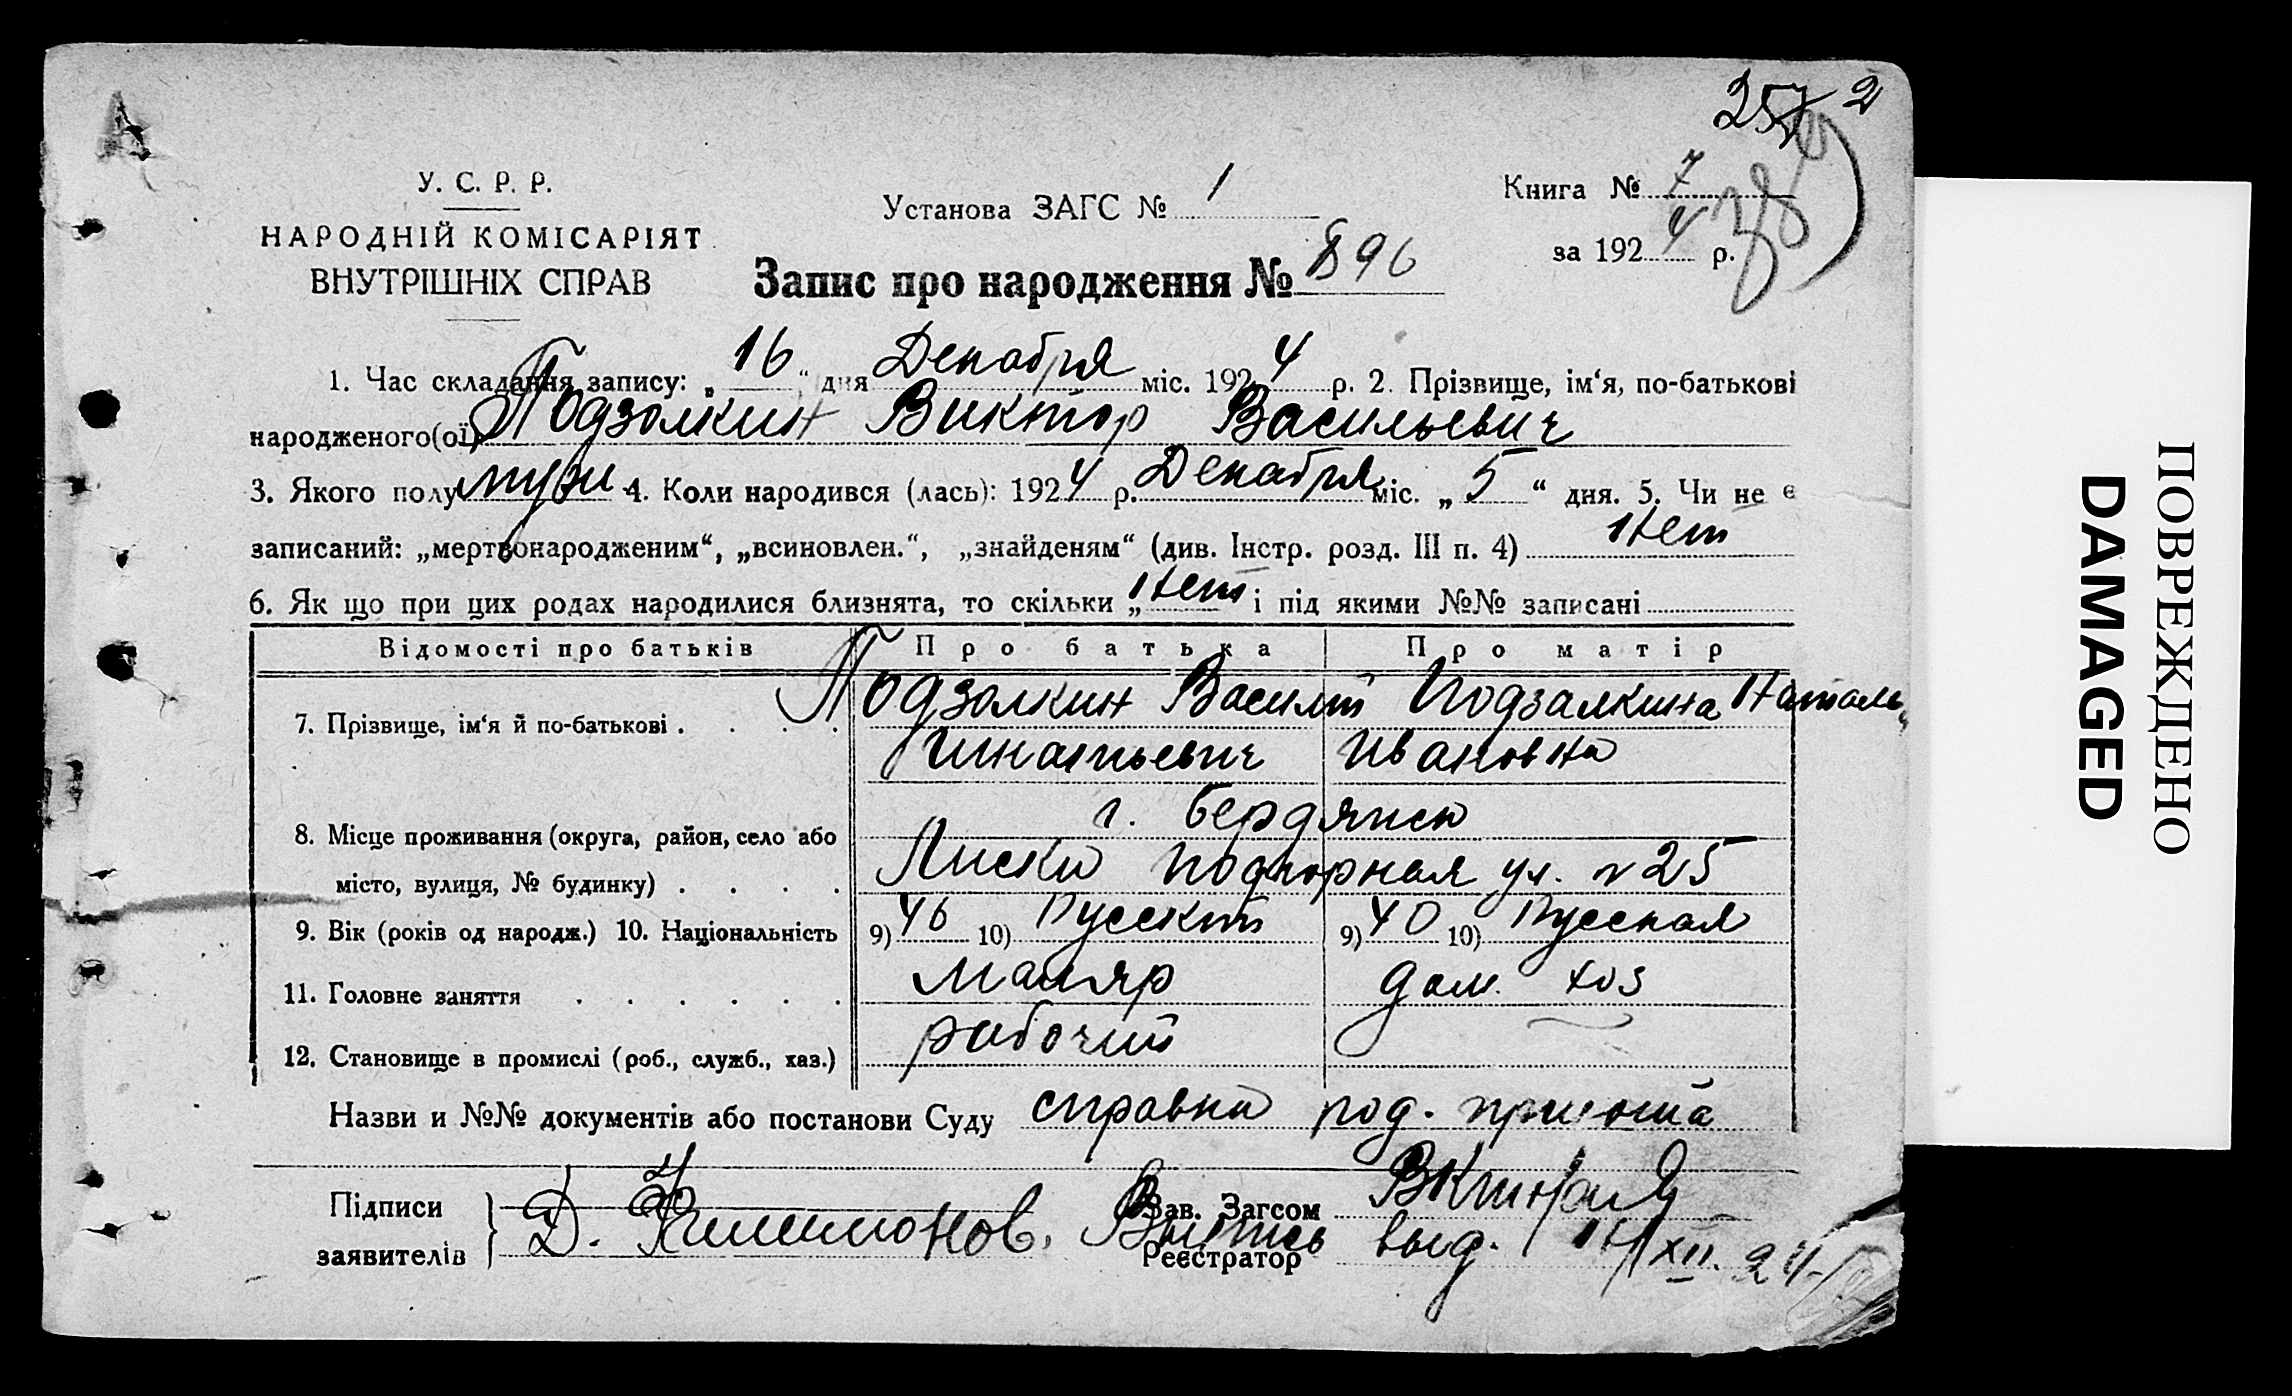 257 2
У. С. Р. Р.
НАРОДНІЙ КОМІСАРІЯТ
ВНУТРІШНІХ СПРАВ
Установа ЗАГС № 1
Книга № 7
за 1924 р.
Запис про народження № 896
1. Час складання запису: „16“ дня Декабря міс. 1924 р. 2. Прізвище, ім‘я, по-батькові
народженого(ої) Подзолкин Виктор Васильевич
3. Якого полу муж 4. Коли народився (лась): 1924 р. Декабря міс. „5“ дня. 5. Чи не є
записаний: „мертвонародженим“, „всиновлен.“, „знайденям“ (див. Інстр. розд. III п. 4) Нет
6. Як що при цих родах народилися близнята, то скільки „Нет і під якими №№ записані
Відомості про батьків Про батька Про матір
7. Прізвище, ім‘я й по-батькові . . . . Подзолкин Василий Подзалкина Наталь
Игнатьевич Ивановна
г. Бердянск
8. Місце проживання (округа, район, село або
місто, вулиця, № будинку) . . . . Лиски Подгорная ул. № 25
9. Вік (років од народж.) 10. Національність 9) 46 10) Русский 9) 40 10) Русская
11. Головне заняття . . . . . . маляр дом. хоз
12. Становище в промислі (роб., служб., хаз.) рабочий
Назви и №№ документів або постанови Суду справка род. приюта
Підписи
заявителів
Д. Филимонов.
Зав. Загсом
Реєстратор
Выпись выд. XII. 24
ПОВРЕЖДЕНО
DAMAGED